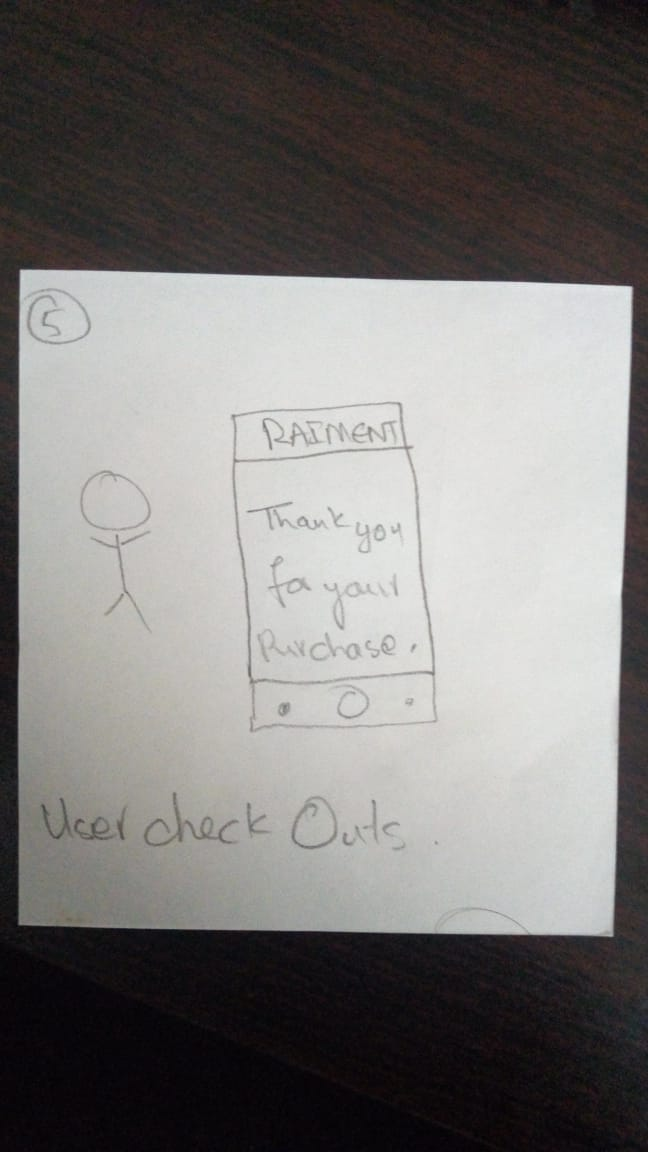 5
RAIMENT
Thank you
for your
Purchase.
User check Outs.